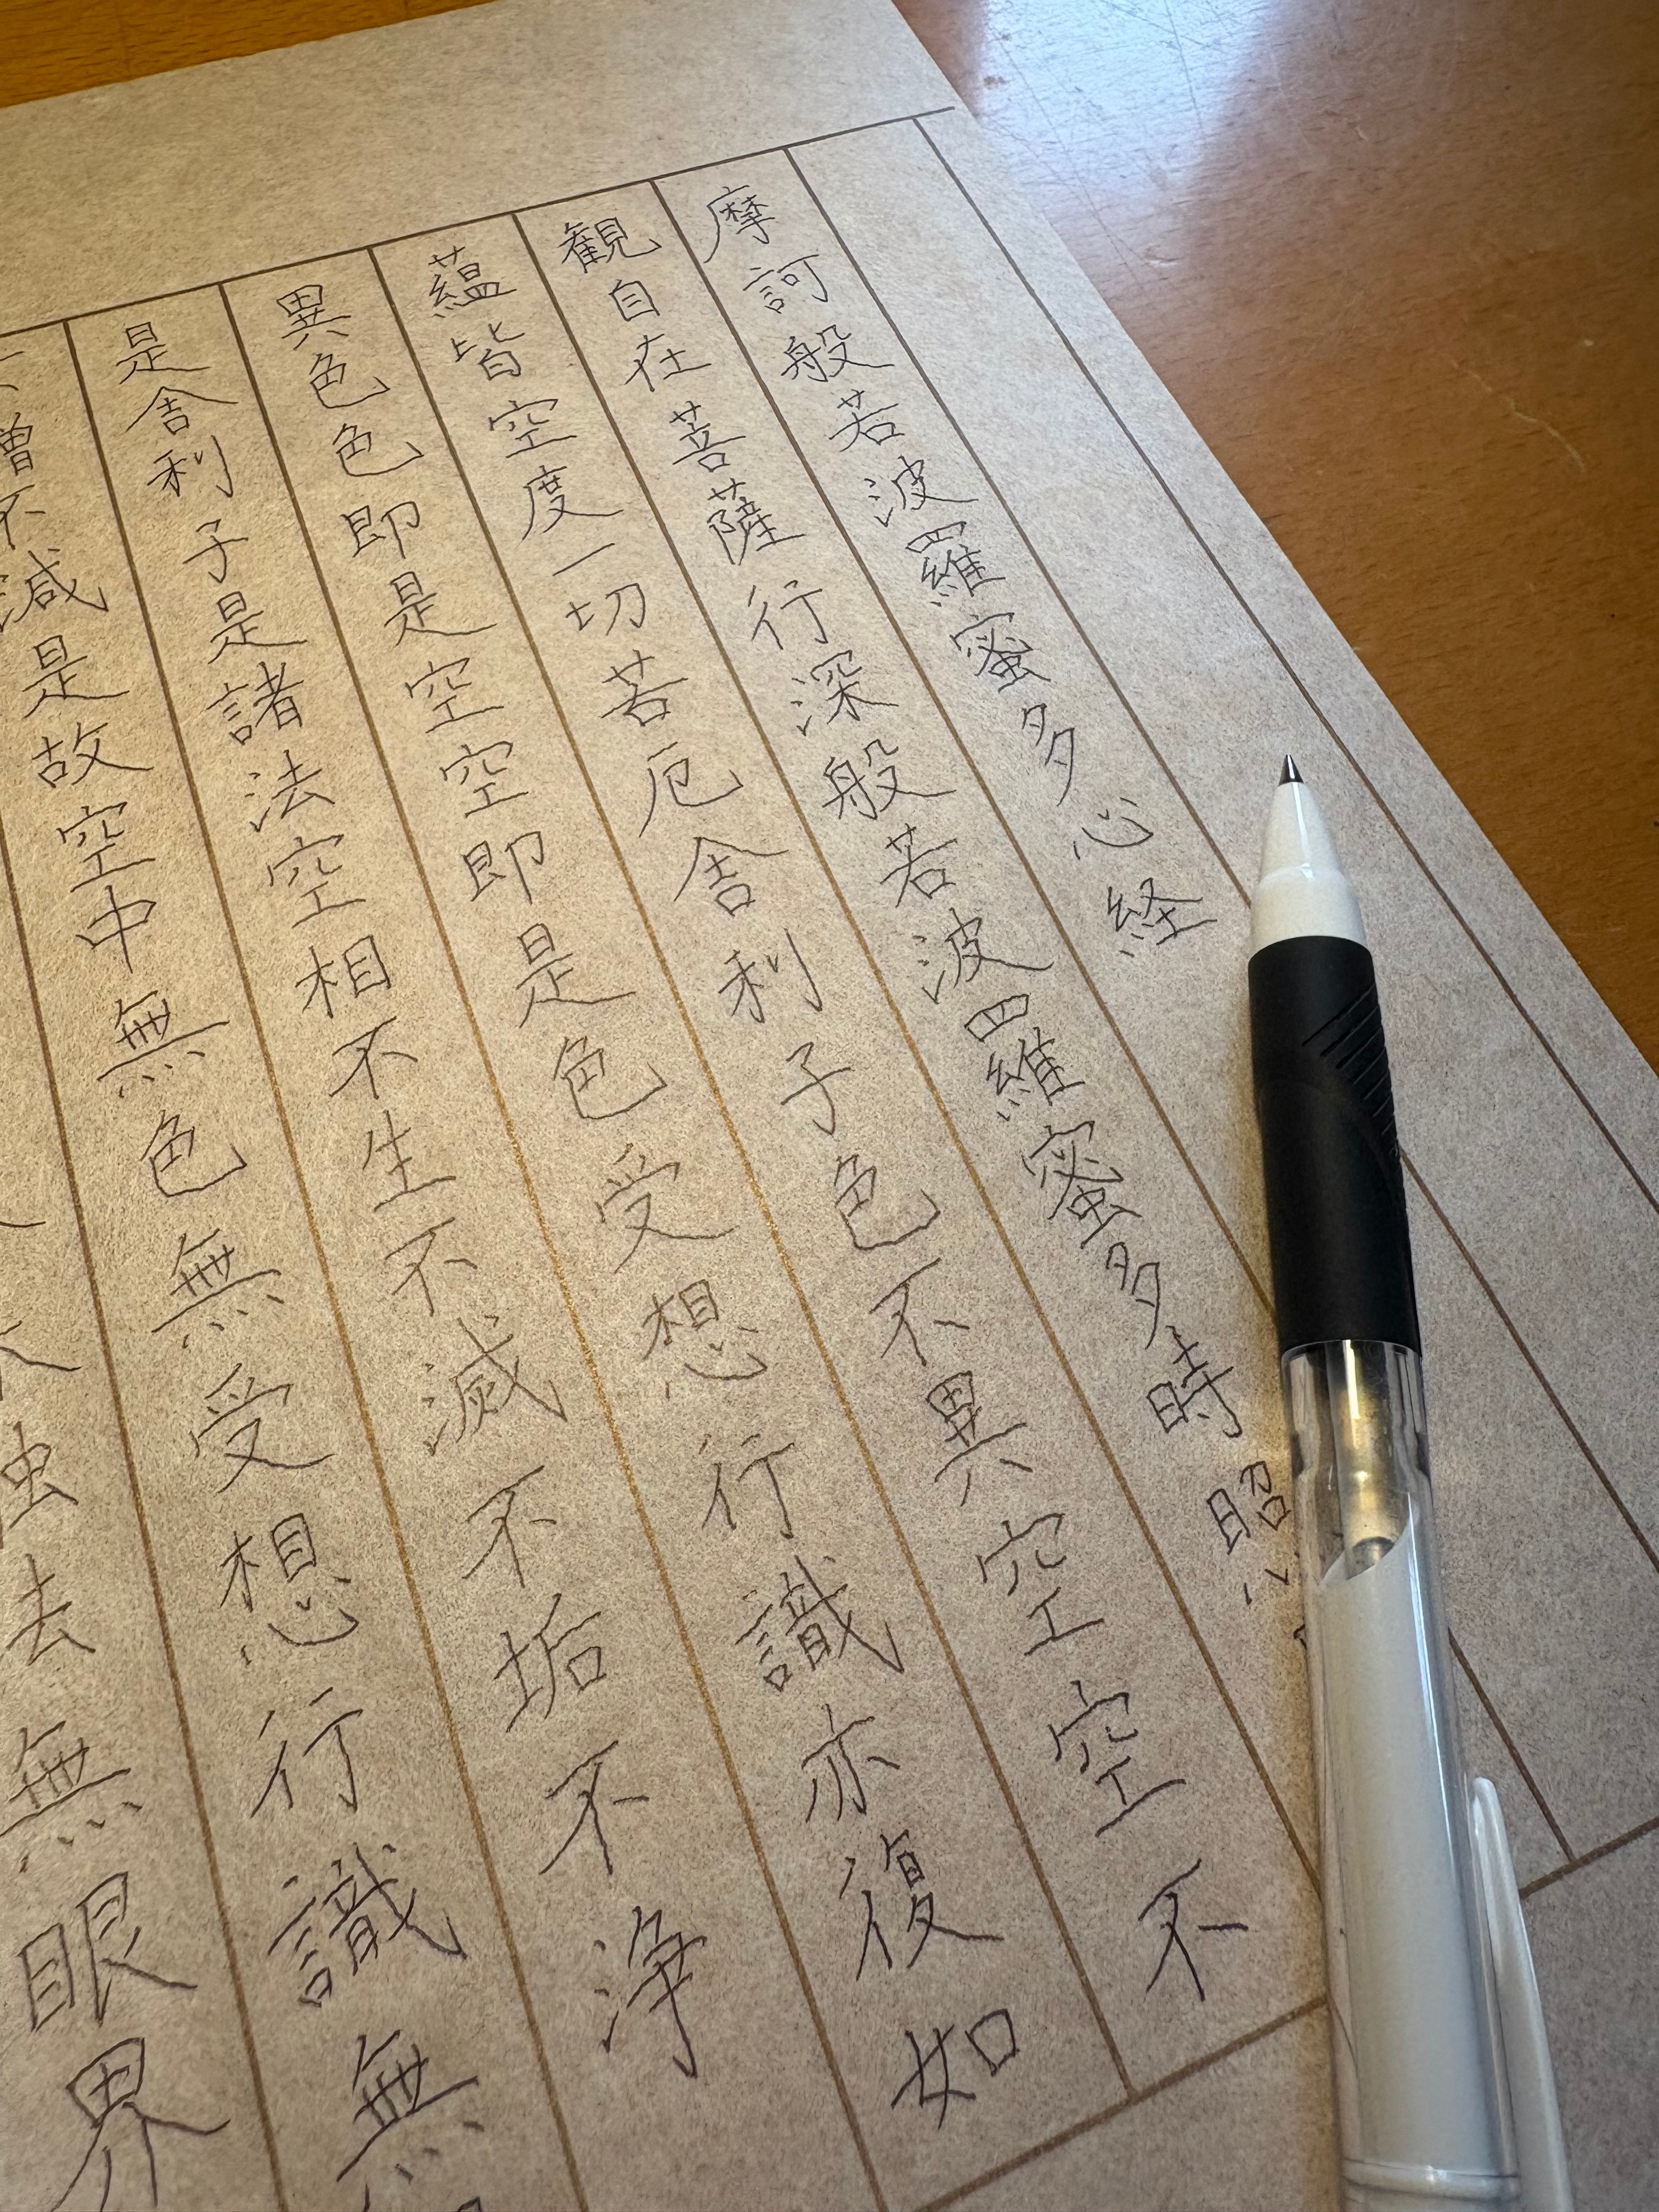 摩訶般若波羅蜜多心経
観自在菩薩行深般若波羅蜜多時照
蘊皆空度一切苦厄舎利子色不異空空不
異色色即是空空即是色受想行識亦復如
是舎利子是諸法空相不生不滅不垢不浄
不増不減是故空中無色無受想行識無
無眼界